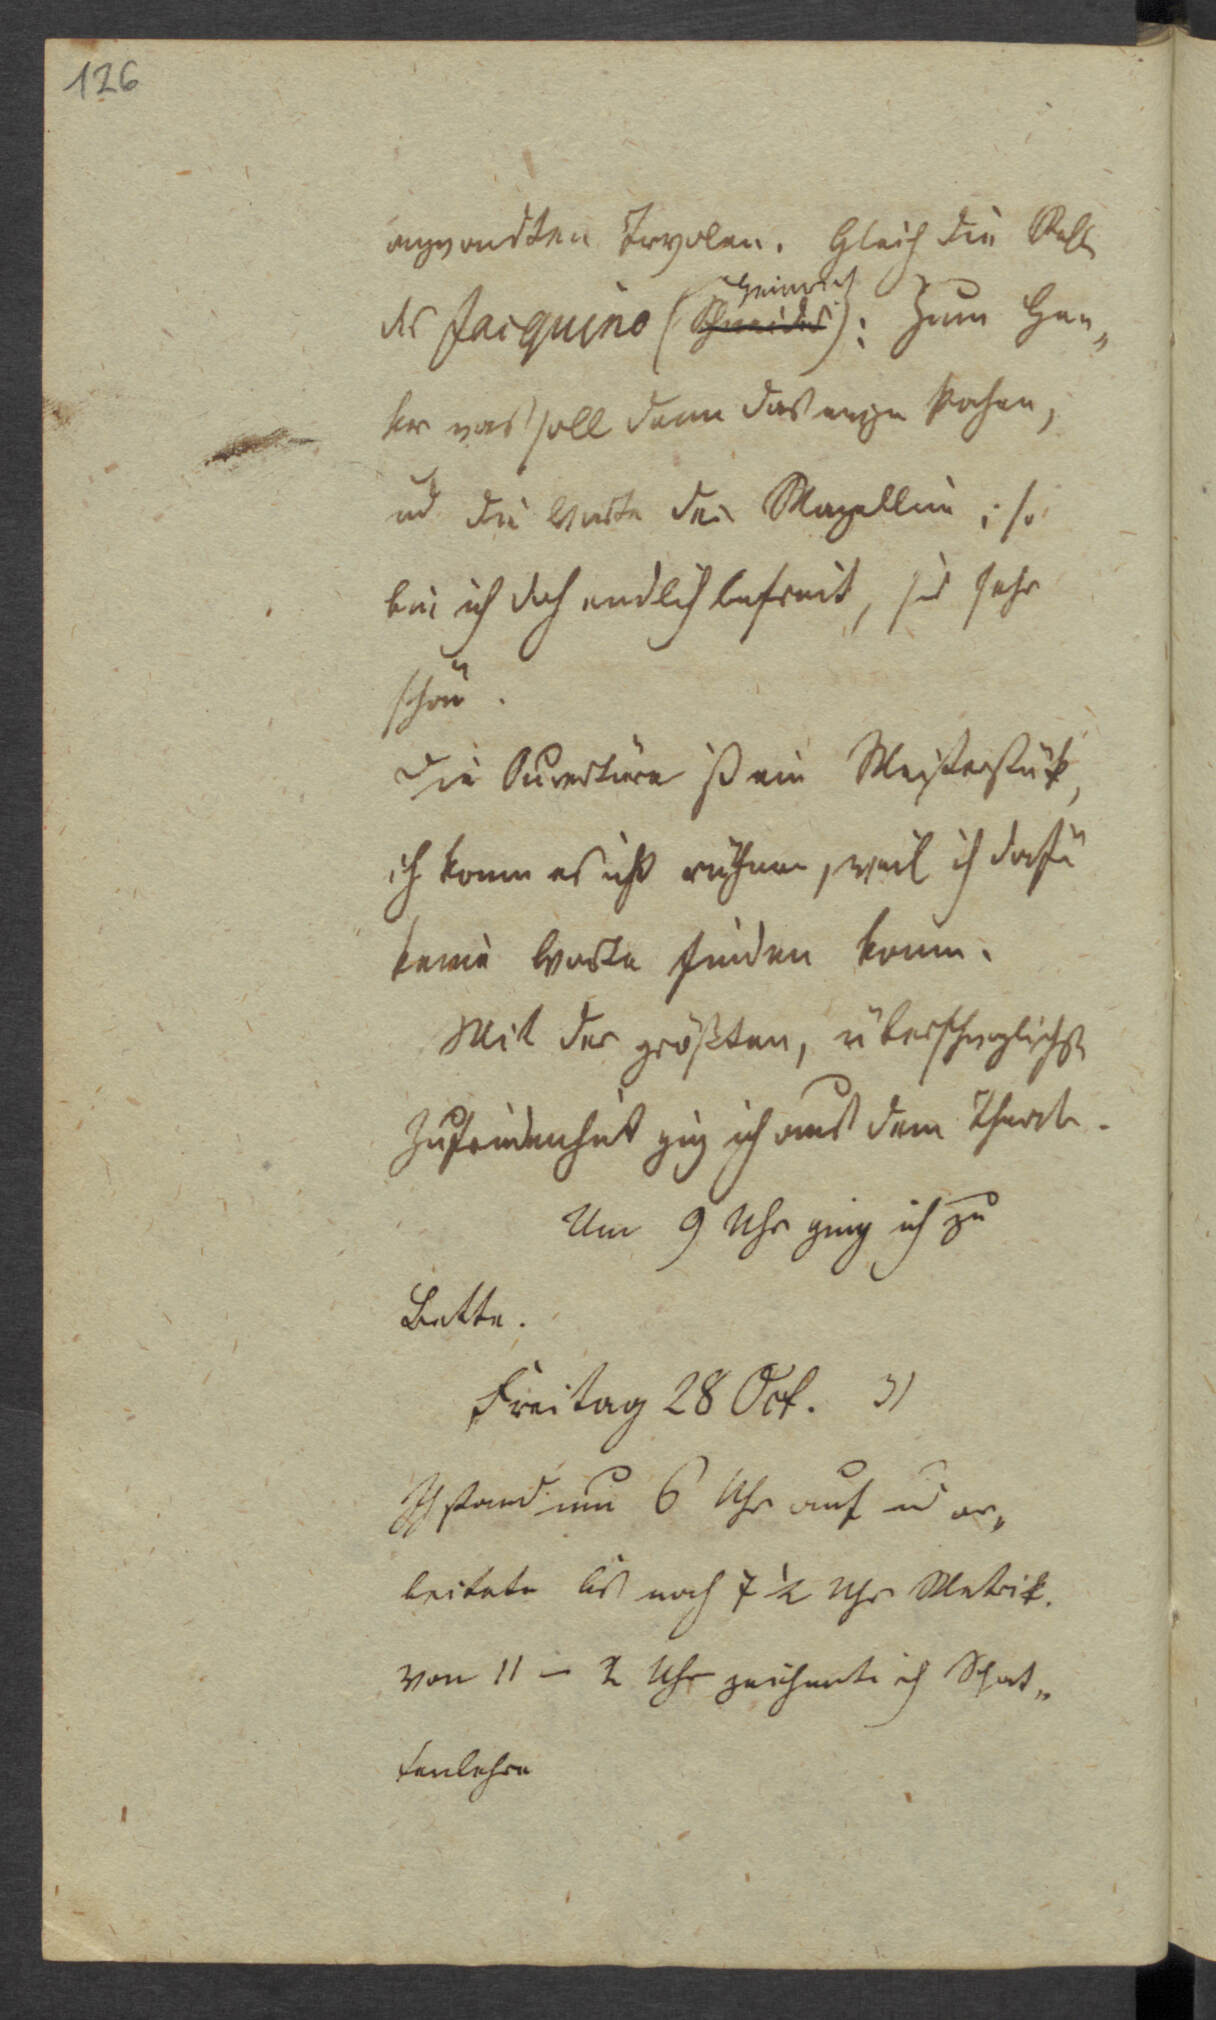 126
angewandten Tryolen. Gleich die Stelle
des Jacquino (Schneider Heinrich): Zum Hen„
ker was soll denn das ewge Pochen,
ud die Worte der Marzelline: so
bin ich doch endlich befreit, sid sehr
schön.
Die Ouvertüre ist ein Meisterstük,
ich kann es nicht rühmen, weil ich dafür
keine Worte finden kann.
Mit der größten, überschwenglichsten
Zufriedenheit ging ich aus dem Theater.
Um 9 Uhr ging ich zu
Bette.
Freitag 28 Oct. 31
Ich stand um 6 Uhr auf ud ar„
beitete bis nach 7 ½ Uhr Metrik.
von 11 – 2 Uhr zeichnete ich Schat„
tenlehre